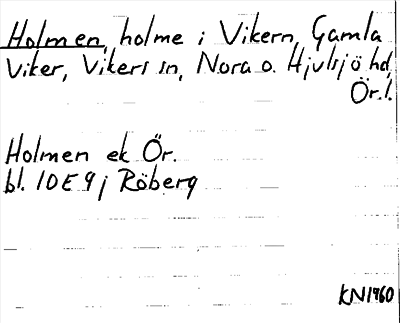 Holmen, holme i Vikern, Gamla
Viker, Vikers sn, Nora o. Hjulsjö hd,
Ör.l.
Holmen ek Ör.
bl. 10E9j Röberg
KN1960